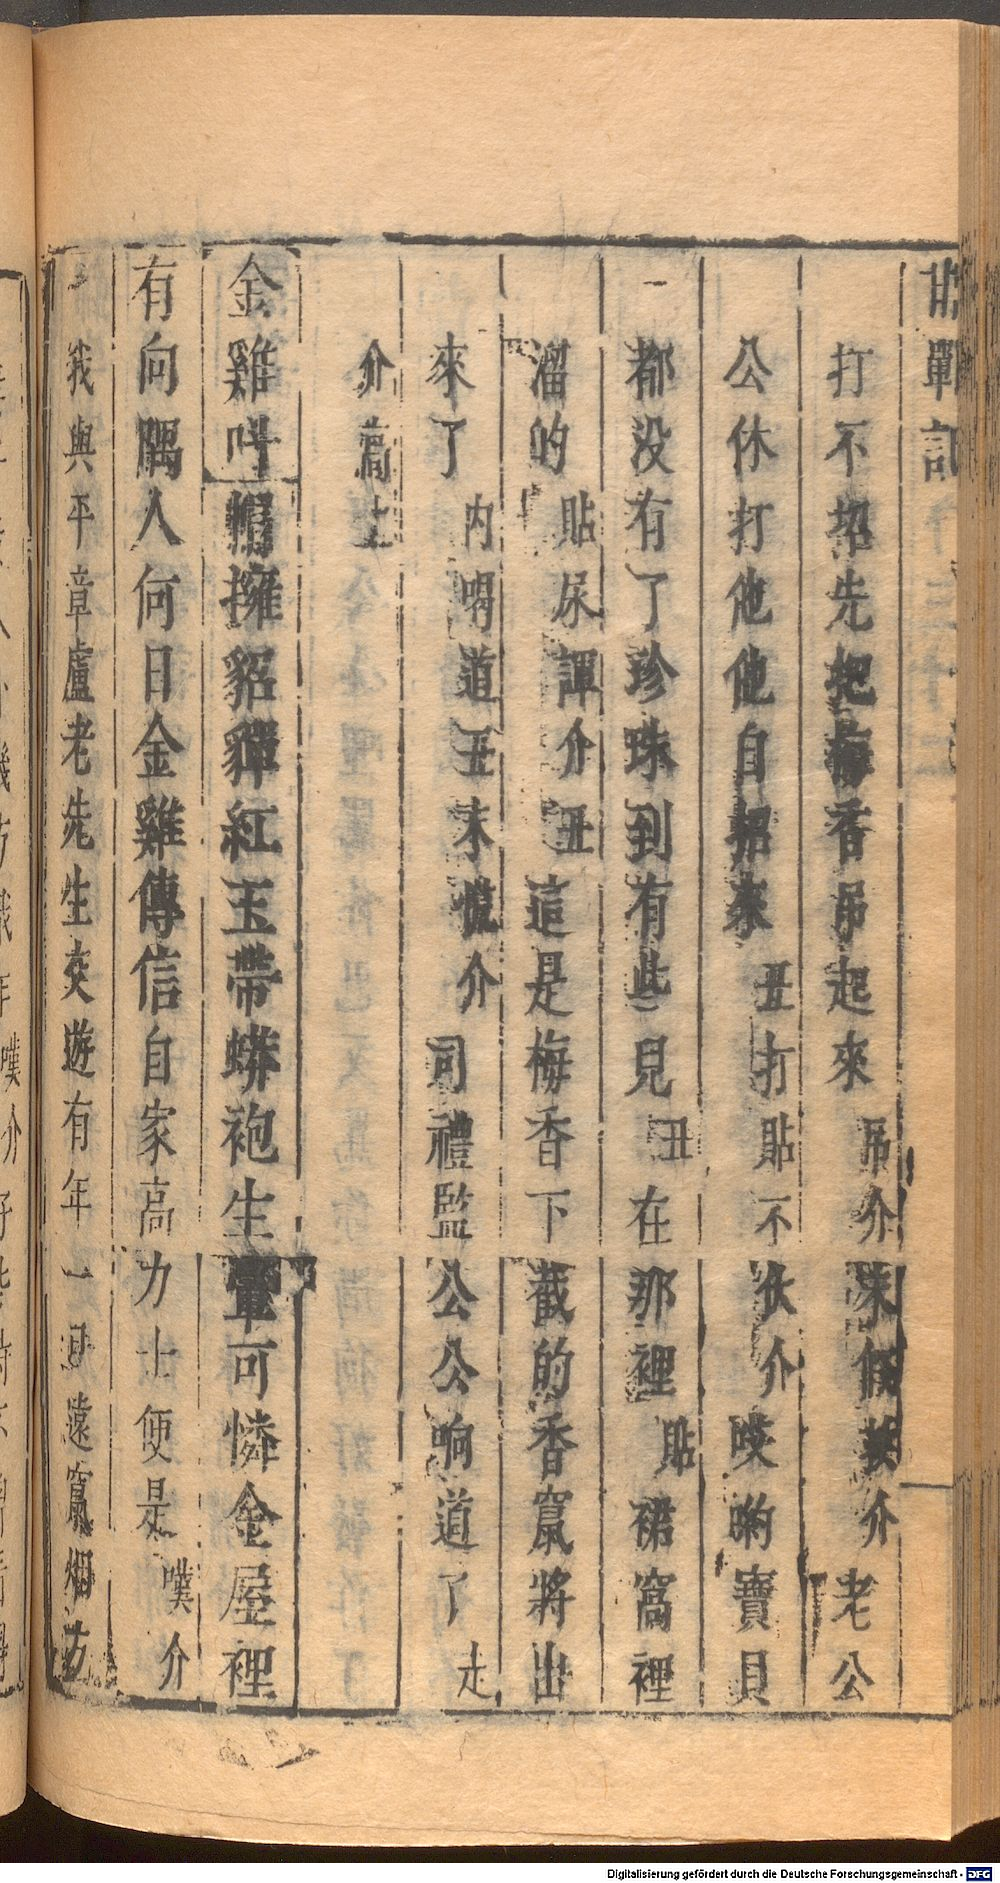 邯鄲記
打不招先把梅香吊起來 吊介 末假萸介 老公
公休打他他自招來 丑打貼不伏介 唉喲寶貝
都没有了珍珠到有些兒 丑 在那裡 貼 裙窩裡
溜的 貼尿諢介丑 這是梅香下截的香竄將出
來了 内喝道丑末慌介 司禮監公公响道了 走
介高上
金雞呌 帽擁貂蟬紅玉帶蟒袍生暈可憐金屋裡
有向隅人何日金雞傳信自家高力士便是 嘆介
我與平章盧老先生交遊有年一旦遠竄烟方
Digitalisierung gefördert durch die Deutsche Forschungsgemeinschaft - DFG